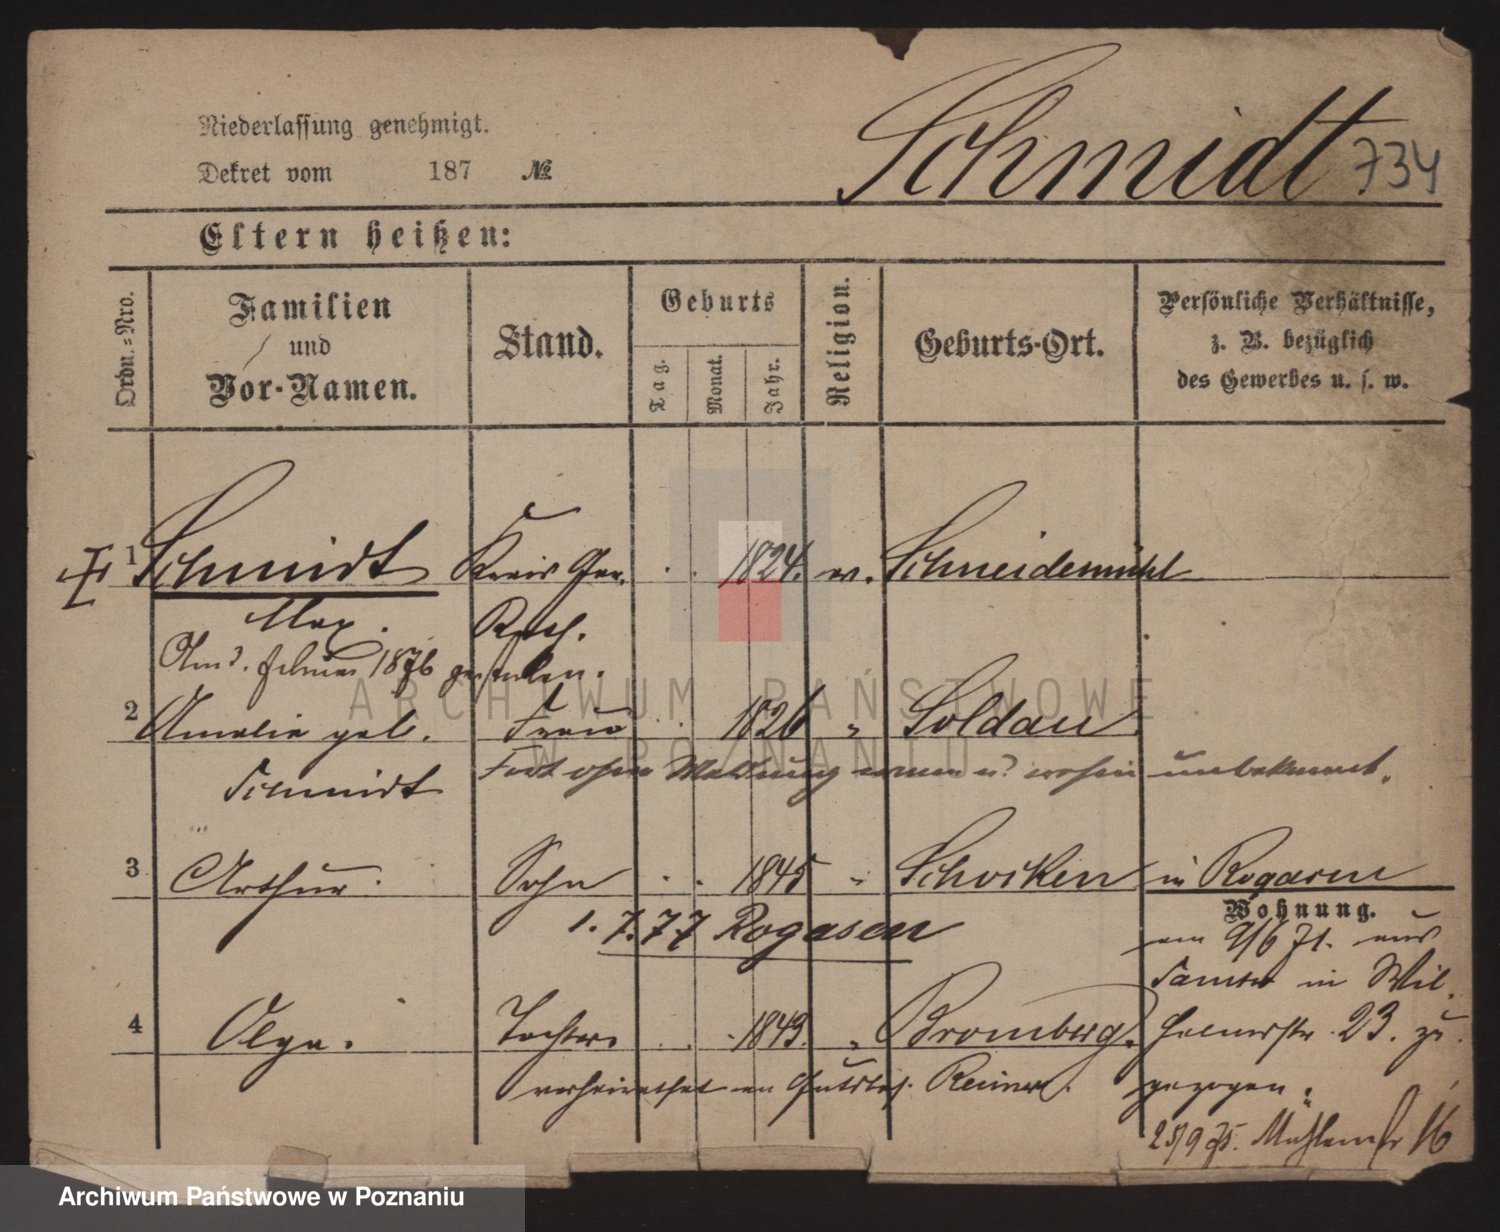 Niederlassung genehmigt.
Dekret vom 187 №
Schmidt 734
Eltern heißen:
Ordn.=Nro.
Familien
und
Vor-Namen.
Stand.
Geburts
Tag.
Monat.
Jahr.
Religion.
Geburts-Ort.
Persönliche Verhältnisse,
z. B. bezüglich
des Gewerbes u. s. w.
1 Schmidt Kreis Ger. 1824. ev. Schneidemühl
Max. Rath.
Am 3. Februar 1876 gestorben.
2 Amalie geb. Frau 1826 " Soldau
Schmidt
Fort ohne Meldung wohin unbekannt.
3 Arthur Sohn 1845 " Schocken in Rogasen
1.7.77 Rogasen
Wohnung.
am 9/6 71. aus
Samter in Wil-
helmstr. 23. zu-
gezogen.
4 Olga. Tochter 1849. " Bromberg.
verheirathet an Gutsbes.
25/9 75. Mühlenstr 16
ARCHIWUM PAŃSTWOWE
W POZNANIU
Archiwum Państwowe w Poznaniu